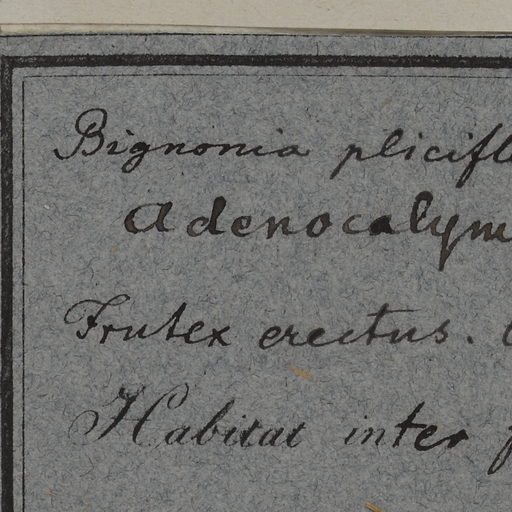 Bignonia plicifl
Adenocalym
Frutex erectus.
Habitat inter